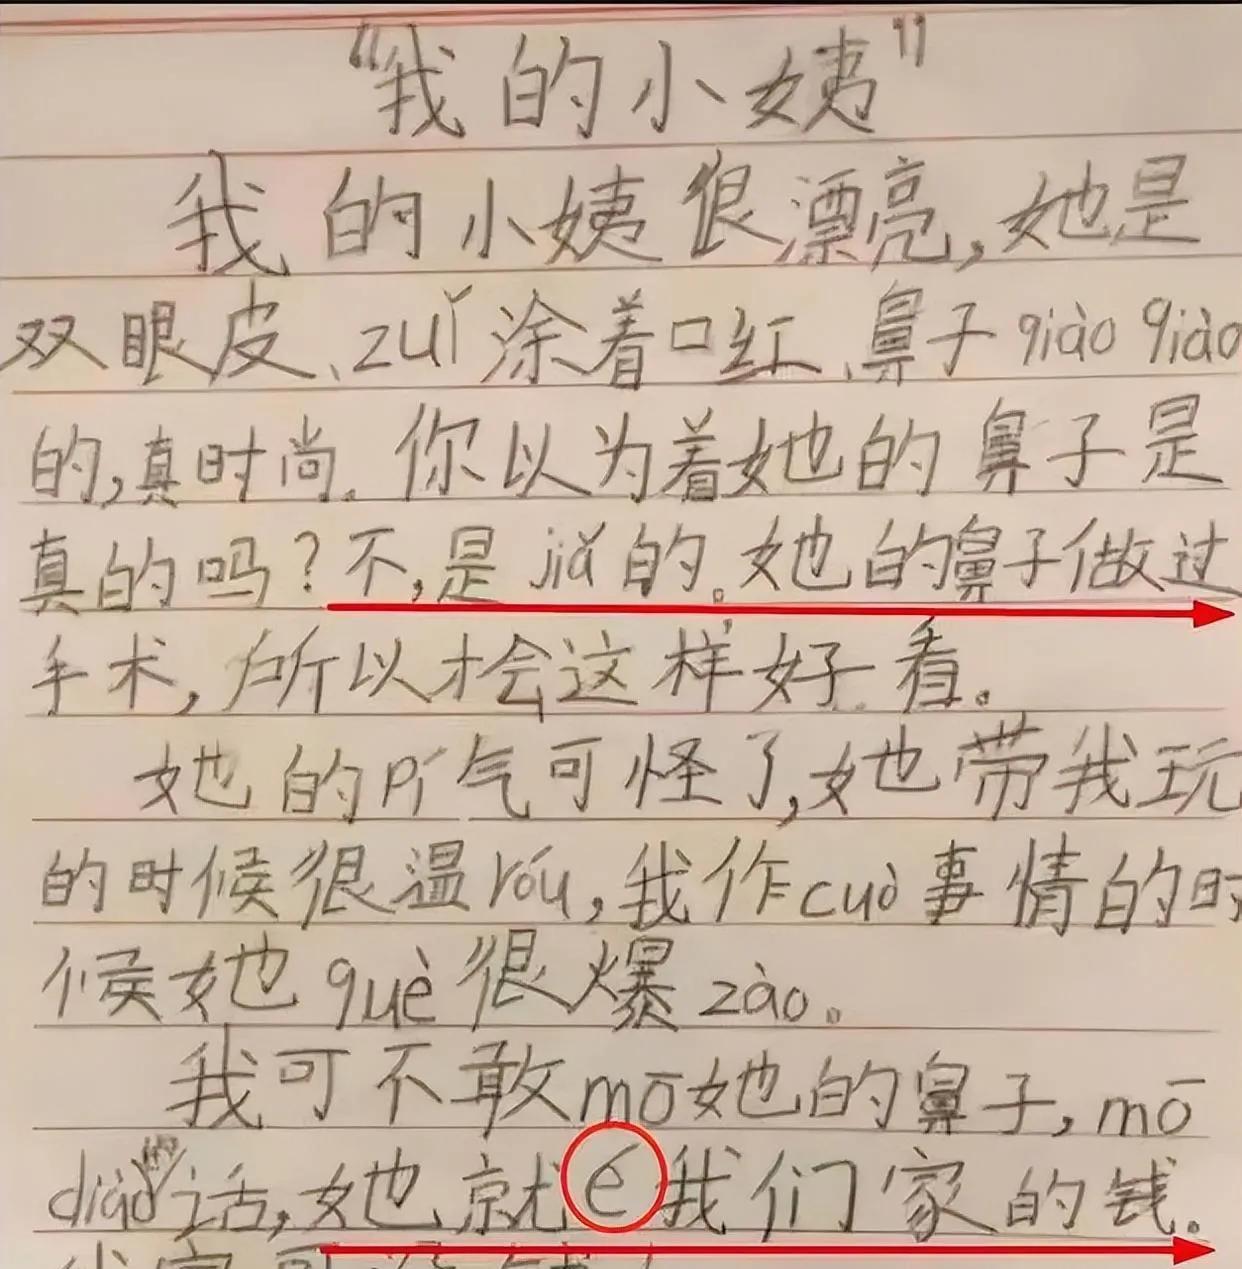 “我的小姨”
我的小姨很漂亮,她是
双眼皮、zuǐ涂着口红、鼻子qiào qiào
的,真时尚。你以为着她的鼻子是
真的吗?不,是jiǎ的。她的鼻子做过
手术,所以才会这样好看。
她的pí气可怪了,她带我玩
的时候很温róu,我作cuò事情的时
候她què很爆zào。
我可不敢mō她的鼻子,mō
diào的话,她就é我们家的钱。
我家可没钱!